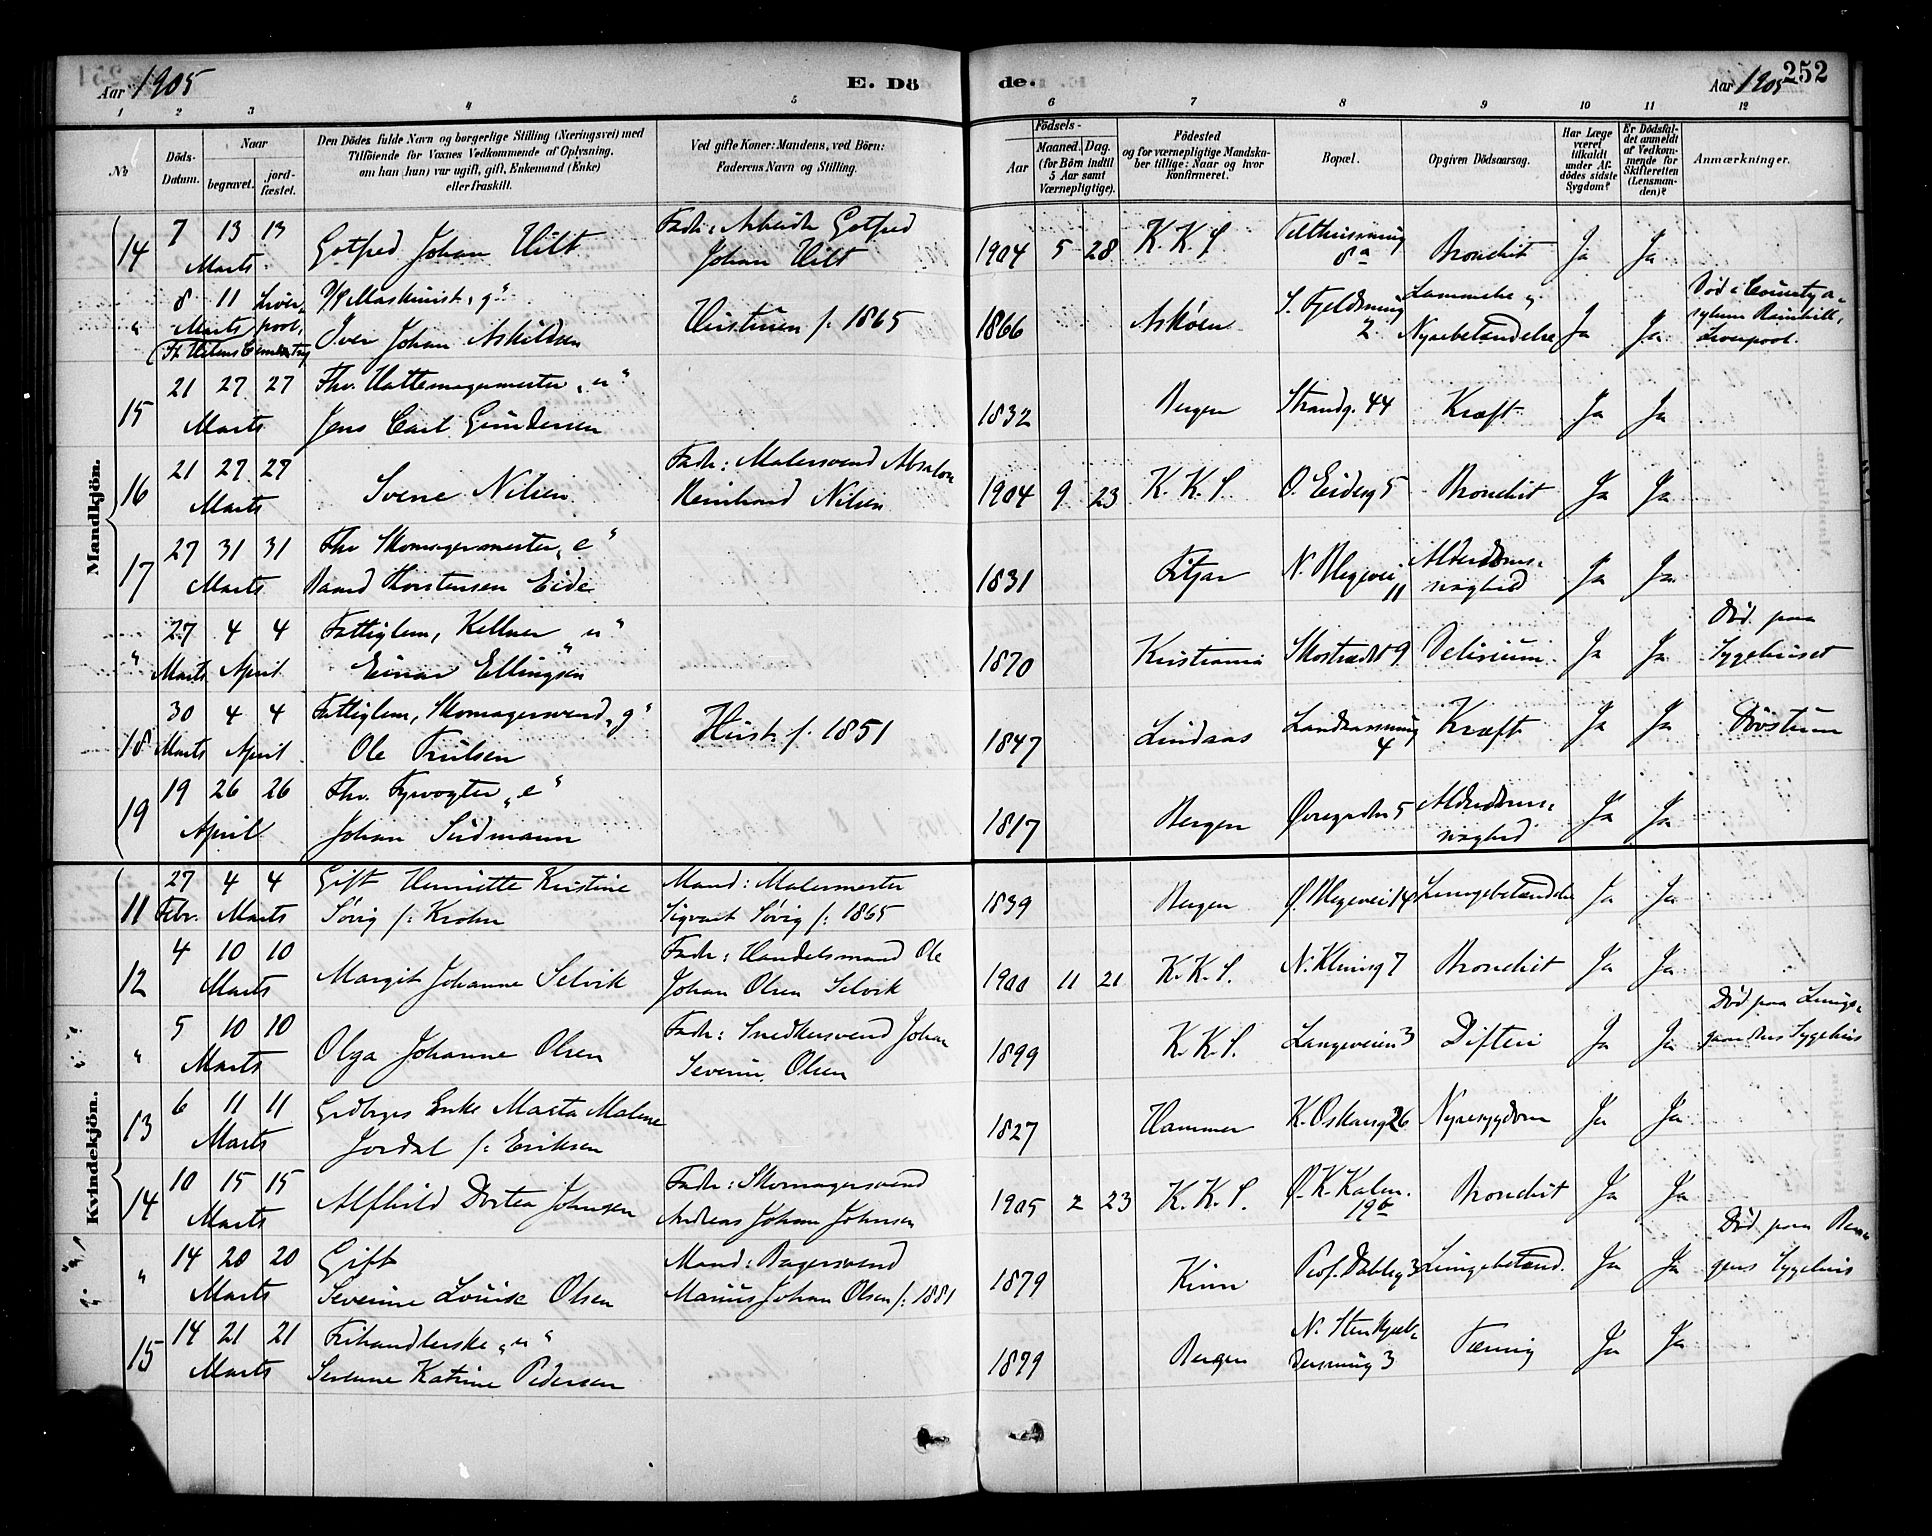 Aar 1905
E. Döde.
Aar 1905
252
1 2 3 4 5 6 7 8 9 10 11 12
No
Döds-Datum.
Naar
begravet.
jord-fæstet.
Den Dödes fulde Navn og borgerlige Stilling (Næringsvei) med
Tilföiende for Voxnes Vedkommende af Oplysning,
om han (hun) var ugift, gift, Enkemand (Enke)
eller fraskilt.
Ved gifte Koner: Mandens, ved Börn:
Faderens Navn og Stilling.
Födsels-
Aar
Maaned. Dag.
(for Börn indtil
5 Aar samt
Værnepligtige).
Födested
og for værnepligtige Mandska-
ber tillige: Naar og hvor
konfirmeret.
Bopæl.
Opgiven Dödsaarsag.
Har Læge
været
tilkaldt
under Af-
dödes sidste
Sygdom?
Er Dödsfal-
det anmeldt
af Vedkom-
mende for
Skifteretten
(Lensman-
den)?
Anmærkninger.
Mandkjön.
14 7 13 13 Marts
Gotfred Johan Hilt
Fader: Arbeider Gotfred
Johan Hilt
1904 5 28 K. K. S.
8a
Bronchit Ja Ja
" 8 11 Liver-
Marts pool,
St. Helens Cemetery
Maskinist, "g"
Iver Johan Askildsen
Hustruen f. 1865
1866 Askøen
S. Fjeldsmug
2
Nyrebetændelse Ja Ja
Død i County a-
sylum Rainhill,
Liverpool.
15 21 27 27 Marts
Fhv. Hattemagermester "u"
Jens Carl Gundersen
1832 Bergen Strandg. 44 Kræft Ja Ja
16 21 27 27 Marts
Sverre Nilsen
Fader: Malersvend Absalon
Reinhard Nilsen
1904 9 23 K. K. S. O. Eideg 5 Bronchit Ja Ja
17 27 31 31 Marts
Fhv Skomagermester "e"
Baard Thorstensen Eide
1831 Fitjar
N. Blegevei
11
Alderdoms-
svaghed
Ja Ja
" 27 4 4
Marts April
Fattiglem, Kellner "u"
Einar Ellingsen
1870 Kristiania Skostrædet 9 Delirium Ja Ja
Død paa
Sygehuset
18 30 4 4
Marts April
Fattiglem, Skomagersvend "g"
Ole Trulsen
Hust. f. 1851
1847 Lindaas
4
Kræft Ja Ja
19 19 26 26 April
Fhv. Fyrvogter "e"
Johan Sudmann
1817 Bergen Øvregaden 5
Alderdoms-
svaghed
Ja Ja
Kvindekjön.
11 27 4 4
Febr. Marts
Gift Henriette Kristine
Søvig f: Krohn
Mand: Malermester
Sigvart Søvig f: 1865
1839 Bergen Ø. Blegevei 14 Lungebetændelse Ja Ja
12 4 10 10 Marts
Margit Johanne Selvik
Fader: Handelsmand Ole
Johan Olsen Selvik
1900 11 21 K. K. S. Bronchit Ja Ja
" 5 10 10 Marts
Olga Johanne Olsen
Fader: Snedkersvend Johan
Severin Olsen
1899 K. K. S. Langeveien 3 Difteri Ja Ja
Død paa Lungе-
gaardens Sygehus
13 6 11 11 Marts
Grdbrgs Enke Marta Malene
Jordal f: Eriksen
1827 Hammer K. Oskarsg 26 Nyresygdom Ja Ja
14 10 15 15 Marts
Alfhild Dortea Johnsen
Fader: Skomagersvend
Andreas Johan Johnsen
1905 2 23 K. K. S.
Ø. K. Kalen.
19b
Bronchit Ja Ja
" 14 20 20 Marts
Gift
Severine Lovise Olsen
Mand: Bagersvend
Marius Johan Olsen f: 1881
1879 Kinn Prof. Dahlsg 3 Lungebetænd. Ja Ja
Død paa Ber-
gens Sygehus
15 14 21 21 Marts
Frihandlerske "u"
Severine Katrine Pedersen
1879 Bergen
N. Stenkjel-
dersmug 3
Tæring Ja Ja